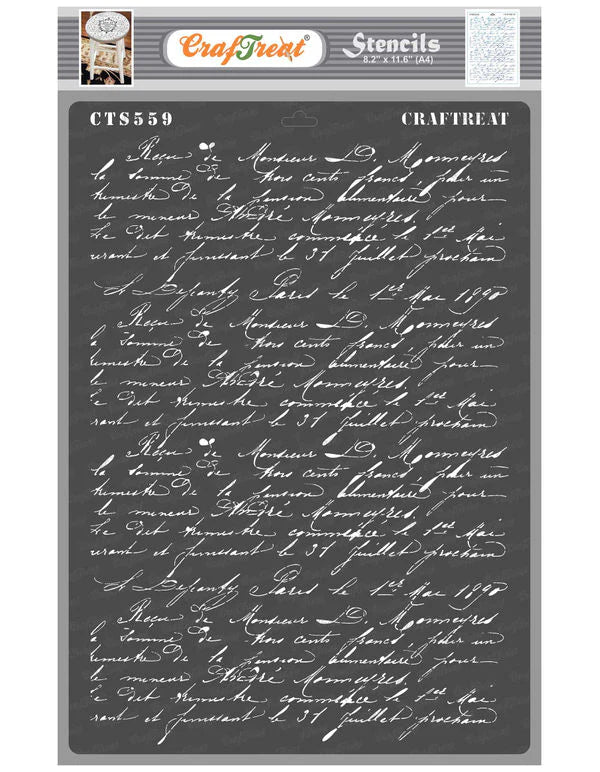 CrafTreat
Stencils
8.2" x 11.6" (A4)
CTS559
CRAFTREAT
Reçu de Monsieur D. Monmeyres
la somme de trois cents francs, pour un
trimestre de la pension alimentaire pour
le mineur André Monmeyres.
Le dit trimestre commence le 1er Mai
et finissant le 31 juillet prochain
Paris le 1er Mai 1890
Reçu de Monsieur D. Monmeyres
la somme de trois cents francs, pour un
trimestre de la pension alimentaire pour
le mineur André Monmeyres.
Le dit trimestre commence le 1er Mai
et finissant le 31 juillet prochain
Reçu de Monsieur D. Monmeyres
la somme de trois cents francs, pour un
trimestre de la pension alimentaire pour
le mineur André Monmeyres.
Le dit trimestre commence le 1er Mai
et finissant le 31 juillet prochain
Paris le 1er Mai 1890
Reçu de Monsieur D. Monmeyres
la somme de trois cents francs, pour un
trimestre de la pension alimentaire pour
le mineur André Monmeyres.
Le dit trimestre commence le 1er Mai
et finissant le 31 juillet prochain